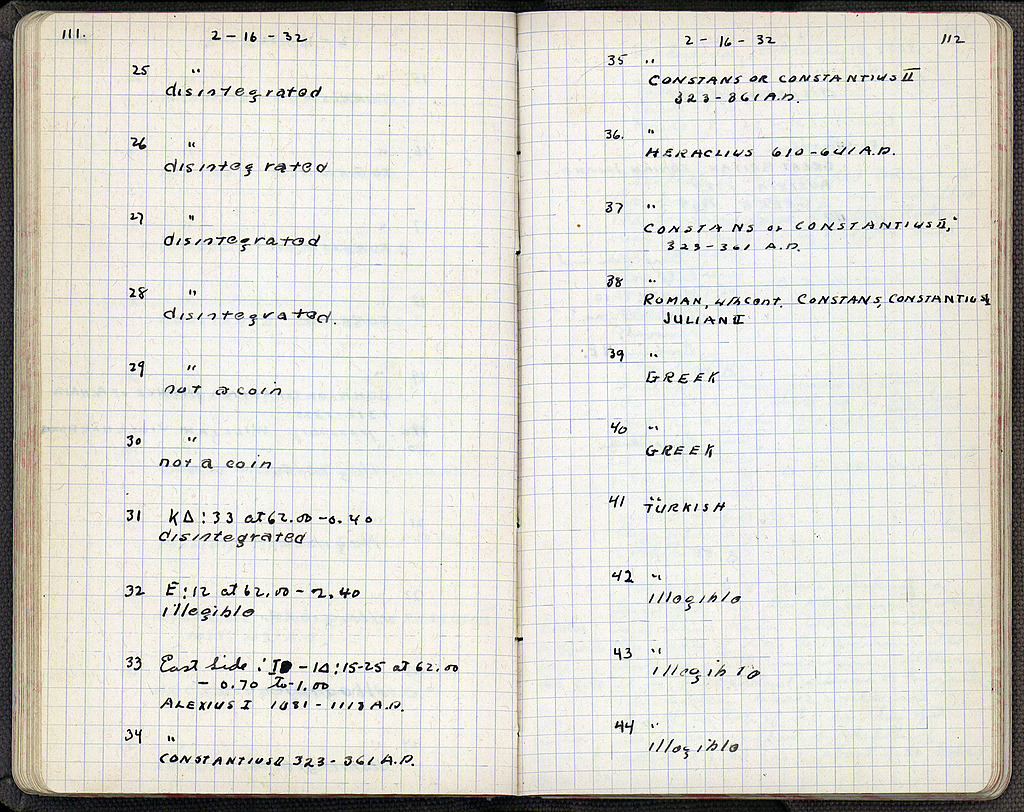 111.
2 - 16 - 32
25 "
disintegrated
26 "
disintegrated
27 "
disintegrated
28 "
disintegrated.
29 "
not a coin
30 "
not a coin
31 ΚΔ : 33 at 62.00 - 0.40
disintegrated
32 Ε : 12 at 62.00 - 2.40
illegible
33 East side : - ΙΔ : 15-25 at 62.00
- 0.70 to -1.00
ALEXIUS I 1081 - 1118 A.D.
34 "
CONSTANTIUS II 323 - 361 A.D.
2 - 16 - 32
112
35 "
CONSTANS OR CONSTANTIUS II
323 - 361 A.D.
36. "
HERACLIUS 610 - 641 A.D.
37 "
CONSTANS or CONSTANTIUS II,
323 - 361 A.D.
38 "
ROMAN, 4th cent. CONSTANS, CONSTANTIUS
JULIAN II
39 "
GREEK
40 "
GREEK
41 "
TURKISH
42 "
illegible
43 "
illegible
44 "
illegible